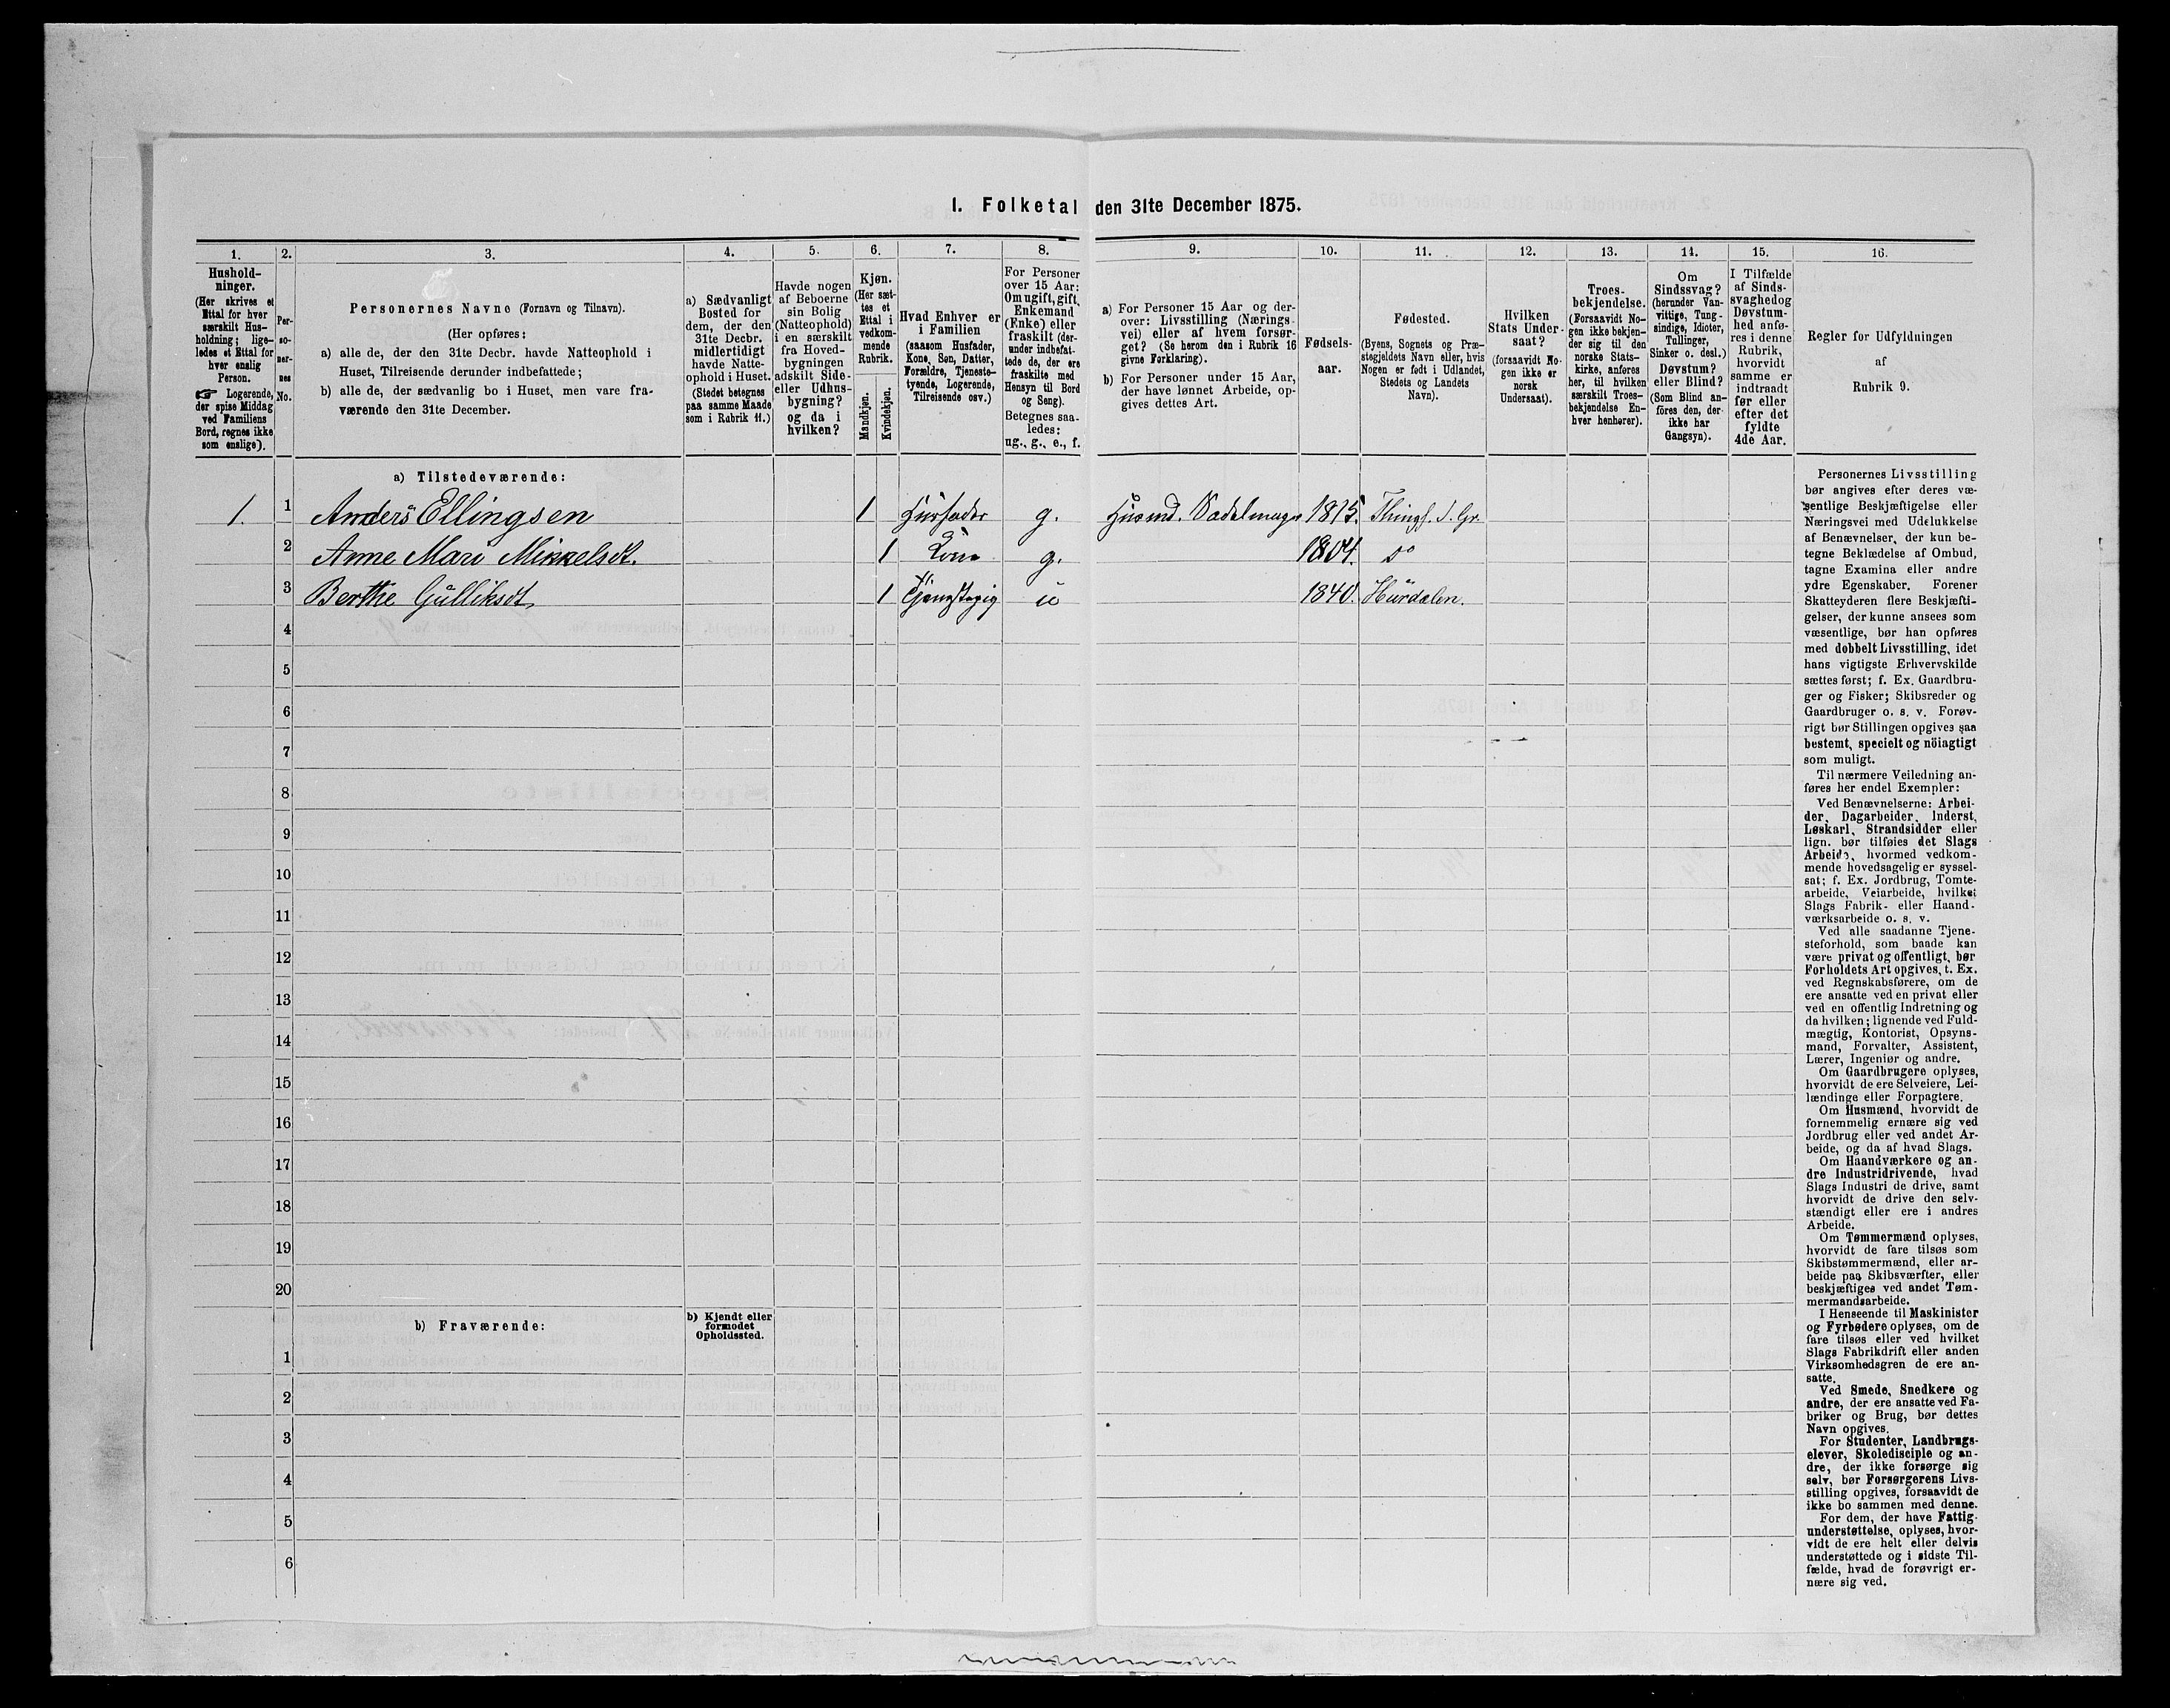 1. Folketal den 31te December 1875.
1. 2. 3. 4. 5. 6. 7. 8. 9. 10. 11. 12. 13. 14. 15. 16.
Hushold-
ninger.
(Her skrives et
Ettal for hver
særskilt Hus-
holdning; lige-
ledes et Ettal for
hver enslig
Person.
☞ Logerende,
der spise Middag
ved Familiens
Bord, regnes ikke
som enslige).
Per-
so-
ner-
nes
No.
Personernes Navne (Fornavn og Tilnavn).
(Her opføres:
a) alle de, der den 31te Decbr. havde Natteophold i
Huset, Tilreisende derunder indbefattede;
b) alle de, der sædvanlig bo i Huset, men vare fra-
værende den 31te December.
a) Sædvanligt
Bosted for
dem, der den
31te Decbr.
midlertidigt
havde Natte-
ophold i Huset.
(Stedet betegnes
paa samme Maade
som i Rubrik 11.)
Havde nogen
af Beboerne
sin Bolig
(Natteophold)
i en særskilt
fra Hoved-
bygningen
adskilt Side-
eller Udhus-
bygning?
og da i
hvilken?
Kjøn.
(Her sæt-
tes et
Ettal i
vedkom-
mende
Rubrik.
Mandkjøn.
Kvindekjøn.
Hvad Enhver er
i Familien
(saasom Husfader,
Kone, Søn, Datter,
Forældre, Tjeneste-
tyende, Logerende,
Tilreisende osv.)
For Personer
over 15 Aar:
Om ugift, gift,
Enkemand
(Enke) eller
fraskilt (der-
under indbefat-
tede de, der ere
fraskilte med
Hensyn til Bord
og Seng).
Betegnes saa-
ledes:
ug., g., e., f.
a) For Personer 15 Aar og der-
over: Livsstilling (Nærings-
vei) eller af hvem forsør-
get? (Se herom den i Rubrik 16
givne Forklaring).
b) For Personer under 15 Aar,
der have lønnet Arbeide, op-
gives dettes Art.
Fødsels-
aar.
Fødested.
(Byens, Sognets og Præ-
stegjeldets Navn eller, hvis
Nogen er født i Udlandet,
Stedets og Landets
Navn).
Hvilken
Stats Under-
saat?
(forsaavidt No-
gen ikke er
norsk
Undersaat).
Troes-
bekjendelse.
(Forsaavidt No-
gen ikke bekjen-
der sig til den
norske Stats-
kirke, anføres
her, til hvilken
særskilt Troes-
bekjendelse En-
hver henhører).
Om
Sindssvag?
(herunder Van-
vittige, Tung-
sindige, Idioter,
Tullinger,
Sinker o. desl.)
Døvstum?
eller Blind?
(Som Blind an-
føres den, der
ikke har
Gangsyn).
I Tilfælde
af Sinds-
svaghedog
Døvstum-
hed anfø-
res i denne
Rubrik,
hvorvidt
samme er
indtraadt
før eller
efter det
fyldte
4de Aar.
Regler for Udfyldningen
af
Rubrik 9.
a) Tilstedeværende:
1. 1 Anders Ellingsen 1 Husfader g. Husmd. Sadelmager 1815. Thingf. S. Gr.
2 Anne Mari Mikkelsdt. 1 Kone g. 1804. do
3 Berthe Gulliksdt. 1 u 1840. Hurdalen.
4
5
6
7
8
9
10
11
12
13
14
15
16
17
18
19
20
b) Fraværende:
b) Kjendt eller
formodet
Opholdssted.
1
2
3
4
5
6
Personernes Livsstilling
bør angives efter deres væ-
sentlige Beskjæftigelse eller
Næringsvei med Udelukkelse
af Benævnelser, der kun be-
tegne Beklædelse af Ombud,
tagne Examina eller andre
ydre Egenskaber. Forener
Skatteyderen flere Beskjæfti-
gelser, der kunne ansees som
væsentlige, bør han opføres
med dobbelt Livsstilling, idet
hans vigtigste Erhvervskilde
sættes først; f. Ex. Gaardbru-
ger og Fisker; Skibsreder og
Gaardbruger o. s. v. Forøv-
rigt bør Stillingen opgives saa
bestemt, specielt og nöiagtigt
som muligt.
Til nærmere Veiledning an-
føres her endel Exempler:
Ved Benævnelserne: Arbei-
der, Dagarbeider, Inderst,
Løskarl, Strandsidder eller
lign. bør tilføies det Slags
Arbeide, hvormed vedkom-
mende hovedsagelig er syssel-
sat; f. Ex. Jordbrug, Tomte-
arbeide, Veiarbeide, hvilket
Slags Fabrik- eller Haand-
værksarbeide o. s. v.
Ved alle saadanne Tjene-
steforhold, som baade kan
være privat og offentligt, bør
Forholdets Art opgives, t. Ex.
ved Regnskabsførere, om de
ere ansatte ved en privat eller
ved en offentlig Indretning og
da hvilken; lignende ved Fuld-
mægtig, Kontorist, Opsyns-
mand, Forvalter, Assistent,
Lærer, Ingeniør og andre.
Om Gaardbrugere oplyses,
hvorvidt de ere Selveiere, Lei-
lændinge eller Forpagtere.
Om Husmænd, hvorvidt de
fornemmelig ernære sig ved
Jordbrug eller ved andet Ar-
beide, og da af hvad Slags.
Om Haandværkere og an-
dre Industridrivende, hvad
Slags Industri de drive, samt
hvorvidt de drive den selv-
stændigt eller ere i andres
Arbeide.
Om Tømmermænd oplyses,
hvorvidt de fare tilsøs som
Skibstømmermænd, eller ar-
beide paa Skibsværfter, eller
beskjæftiges ved andet Tøm-
mermandsarbeide.
I Henseende til Maskinister
og Fyrbødere oplyses, om de
fare tilsøs eller ved hvilket
Slags Fabrikdrift eller anden
Virksomhedsgren de ere an-
satte.
Ved Smede, Snedkere og
andre, der ere ansatte ved Fa-
briker og Brug, bør dettes
Navn opgives.
For Studenter, Landbrugs-
elever, Skoledisciple og an-
dre, der ikke forsørge sig
selv, bør Forsørgerens Livs-
stilling opgives, forsaavidt de
ikke bo sammen med denne.
For dem, der have Fattig-
understøttelse, oplyses, hvor-
vidt de ere helt eller delvis
understøttede og i sidste Til-
fælde, hvad de forøvrigt er-
nære sig ved.